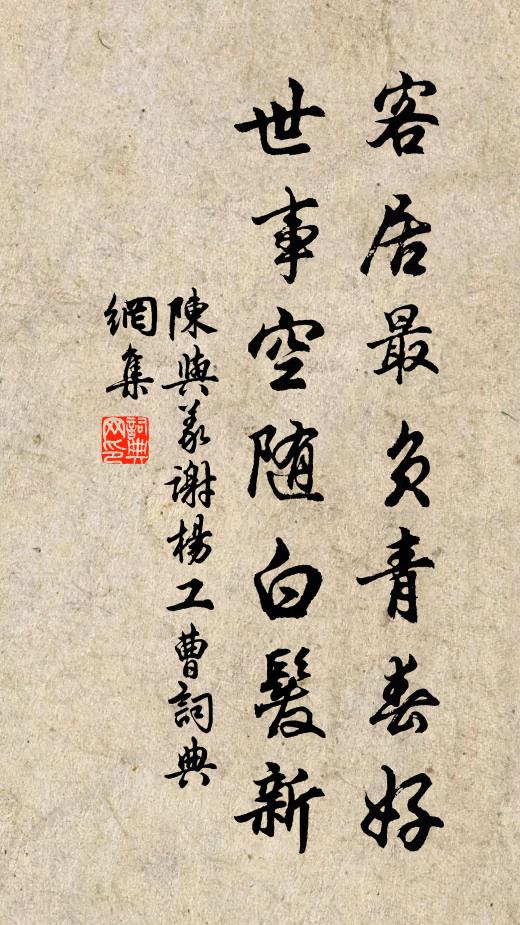 客居最负青春好
世事空随白髮新
陳與義谢楊工曹詞典
網集
詞典网印